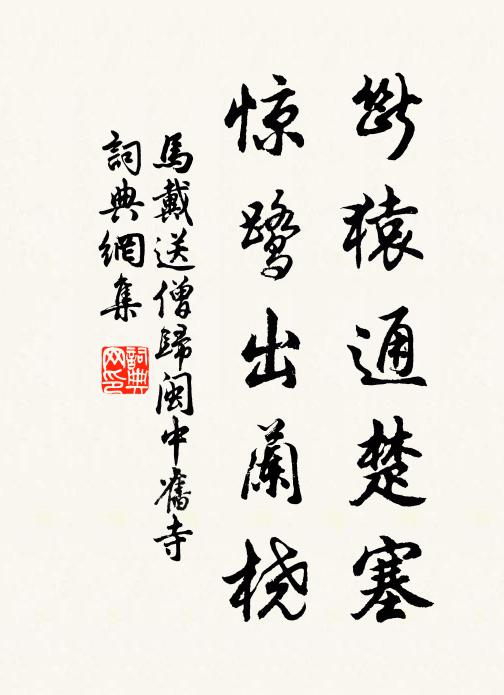 斷猿通楚塞
惊鹭出蘭桡
馬戴送僧歸閩中舊寺
詞典網集
詞典
网印